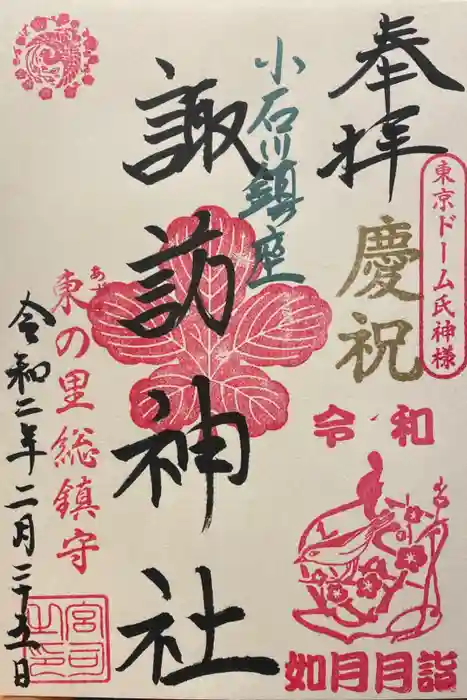 奉拝
慶祝
東京ドーム氏神様
小石川鎮座
諏訪神社
東の里総鎮守
令和二年二月二十五日
令和
如月月詣
宮司之印